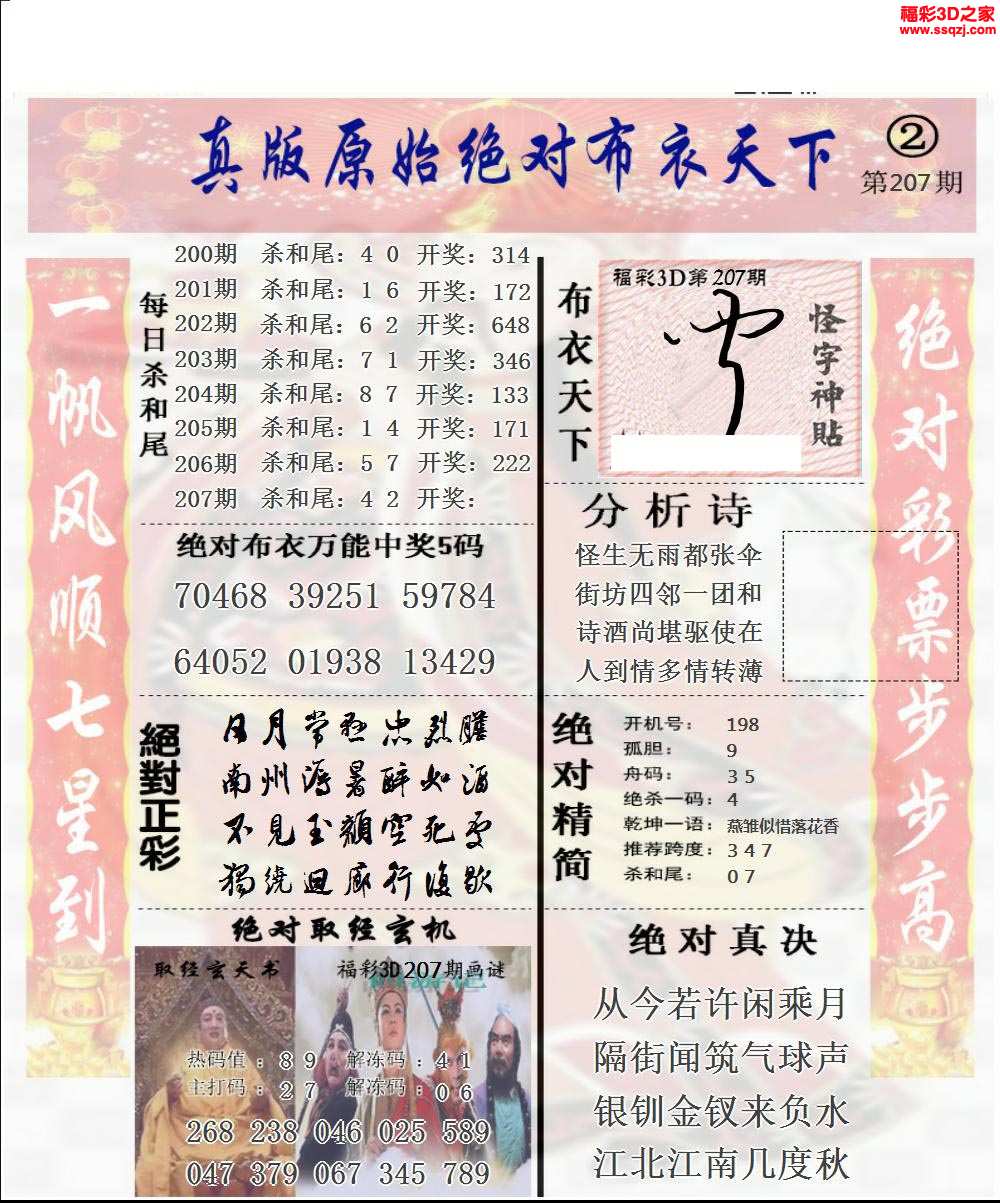 福彩3D之家
www.ssqzj.com
真版原始绝对布衣天下
②
第207期
一帆风顺七星到
每日杀和尾
200期 杀和尾：4 0 开奖：314
201期 杀和尾：1 6 开奖：172
202期 杀和尾：6 2 开奖：648
203期 杀和尾：7 1 开奖：346
204期 杀和尾：8 7 开奖：133
205期 杀和尾：1 4 开奖：171
206期 杀和尾：5 7 开奖：222
207期 杀和尾：4 2 开奖：
绝对布衣万能中奖5码
70468 39251 59784
64052 01938 13429
絕對正彩
日月常懸忠烈膽
南州溽暑醉如酒
不見玉顏空死處
獨繞迴廊行復歇
绝对取经玄机
取经玄天书
福彩3D207期画谜
热码值：8 9 解冻码：4 1
主打码：2 7 解冻码：0 6
268 238 046 025 589
047 379 067 345 789
布衣天下
福彩3D第207期
怪字神贴
分析诗
怪生无雨都张伞
街坊四邻一团和
诗酒尚堪驱使在
人到情多情转薄
绝对精简
开机号：198
孤胆：9
舟码：3 5
绝杀一码：4
乾坤一语：燕雏似惜落花香
推荐跨度：3 4 7
杀和尾：0 7
绝对真决
从今若许闲乘月
隔街闻筑气球声
银钏金钗来负水
江北江南几度秋
绝对彩票步步高